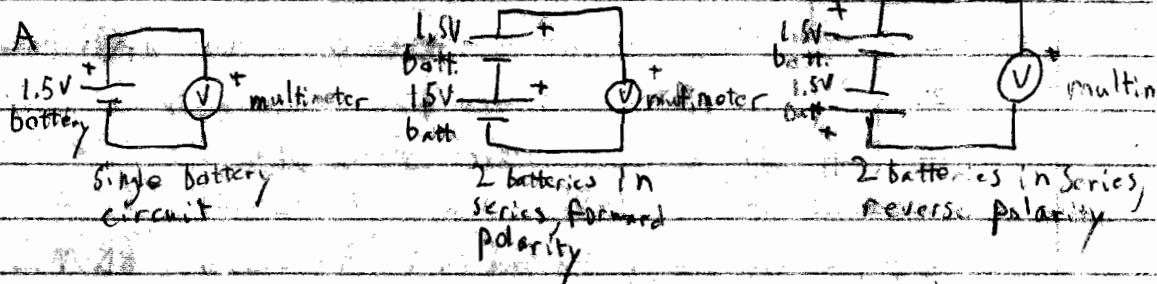 A
+
1.5V
battery
V
+
multimeter
single battery
circuit
1.5V
+
batt.
+
1.5V
batt
V
+
multimeter
2 batteries in
series, forward
polarity
+
1.5V
batt.
1.5V
batt
+
V
+
multim
2 batteries in series,
reverse polarity